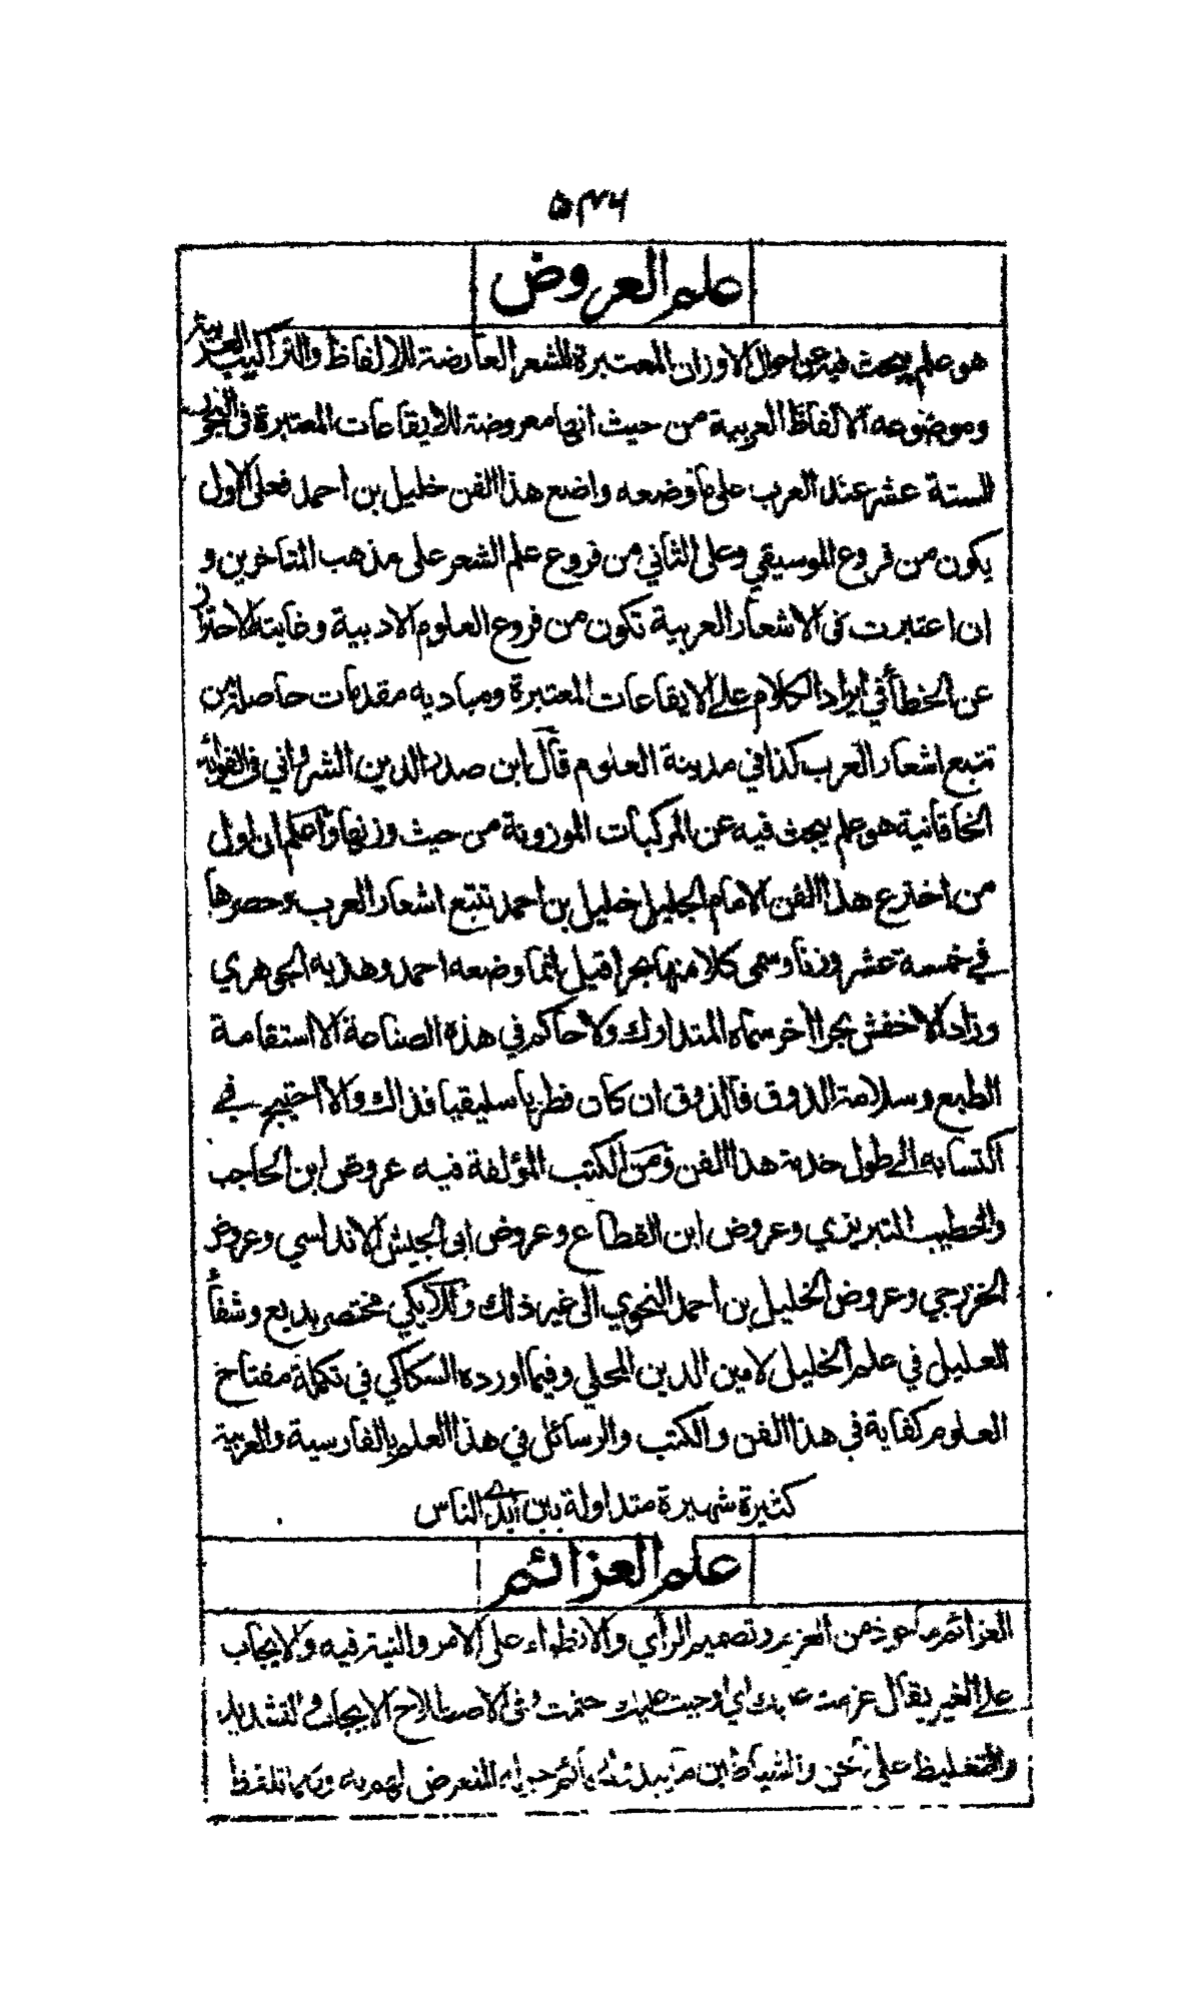 ۵۴۶
علم العروض
هو علم يبحث فيه عن احوال الاوزان المعتبرة للشعر العارضة للالفاظ والتراكيب العربية
وموضوعه الالفاظ العربية من حيث انها معروضة للايقاعات المعتبرة فى البحور
الستة عشر عند العرب على ما وضعه واضع هذا الفن خليل بن احمد فعلى الاول
يكون من فروع الموسيقي وعلى الثاني من فروع علم الشعر على مذهب المتاخرين و
ان اعتبرت فى الاشعار العربية تكون من فروع العلوم الادبية وغايته الاحتراز
عن الخطأ في ايراد الكلام على الايقاعات المعتبرة ومباديه مقدمات حاصلة من
تتبع اشعار العرب كذا في مدينة العلوم قال ابن صدر الدين الشرواني فى الفوائد
الخاقانية هو علم يبحث فيه عن المركبات الموزونة من حيث وزنها واعلم ان اول
من اخترع هذا الفن الامام الجليل خليل بن احمد تتبع اشعار العرب وحصرها
في خمسة عشر وزنا وسمى كلا منها بحرا قيل انما وضعه احمد وهذبه الجوهري
وزاد الاخفش بحرا اخر سماه المتدارك ولا حاكم في هذه الصناعة الا استقامة
الطبع وسلامة الذوق فالذوق ان كان فطريا سليقيا فذاك والا احتيج في
اكتسابه الى طول خدمة هذا الفن ومن الكتب المؤلفة فيه عروض ابن الحاجب
والخطيب التبريزي وعروض ابن القطاع وعروض ابى الجيش الاندلسي وعروض
الخزرجي وعروض الخليل بن احمد النحوي الى غير ذلك وللايكي مختصر بديع وشفأ
العليل في علم الخليل لامين الدين المحلي وفيما اورده السكاكي في تكملة مفتاح
العلوم كفاية في هذا الفن والكتب والرسائل في هذا العلم بالفارسية والعربية
كثيرة شهيرة متداولة بين ايدى الناس
علم العزائم
العزائم ماخوذ من العزم وتصميم الرأي والانطواء على الامر والنية فيه والايجاب
على الغير يقال عزمت عليك اي اوجبت عليك حتمت وفى الاصطلاح الايجاب والتشديد
والتغليظ على الجن والشياطين للمتعرض لهم به وكلما تلفظ